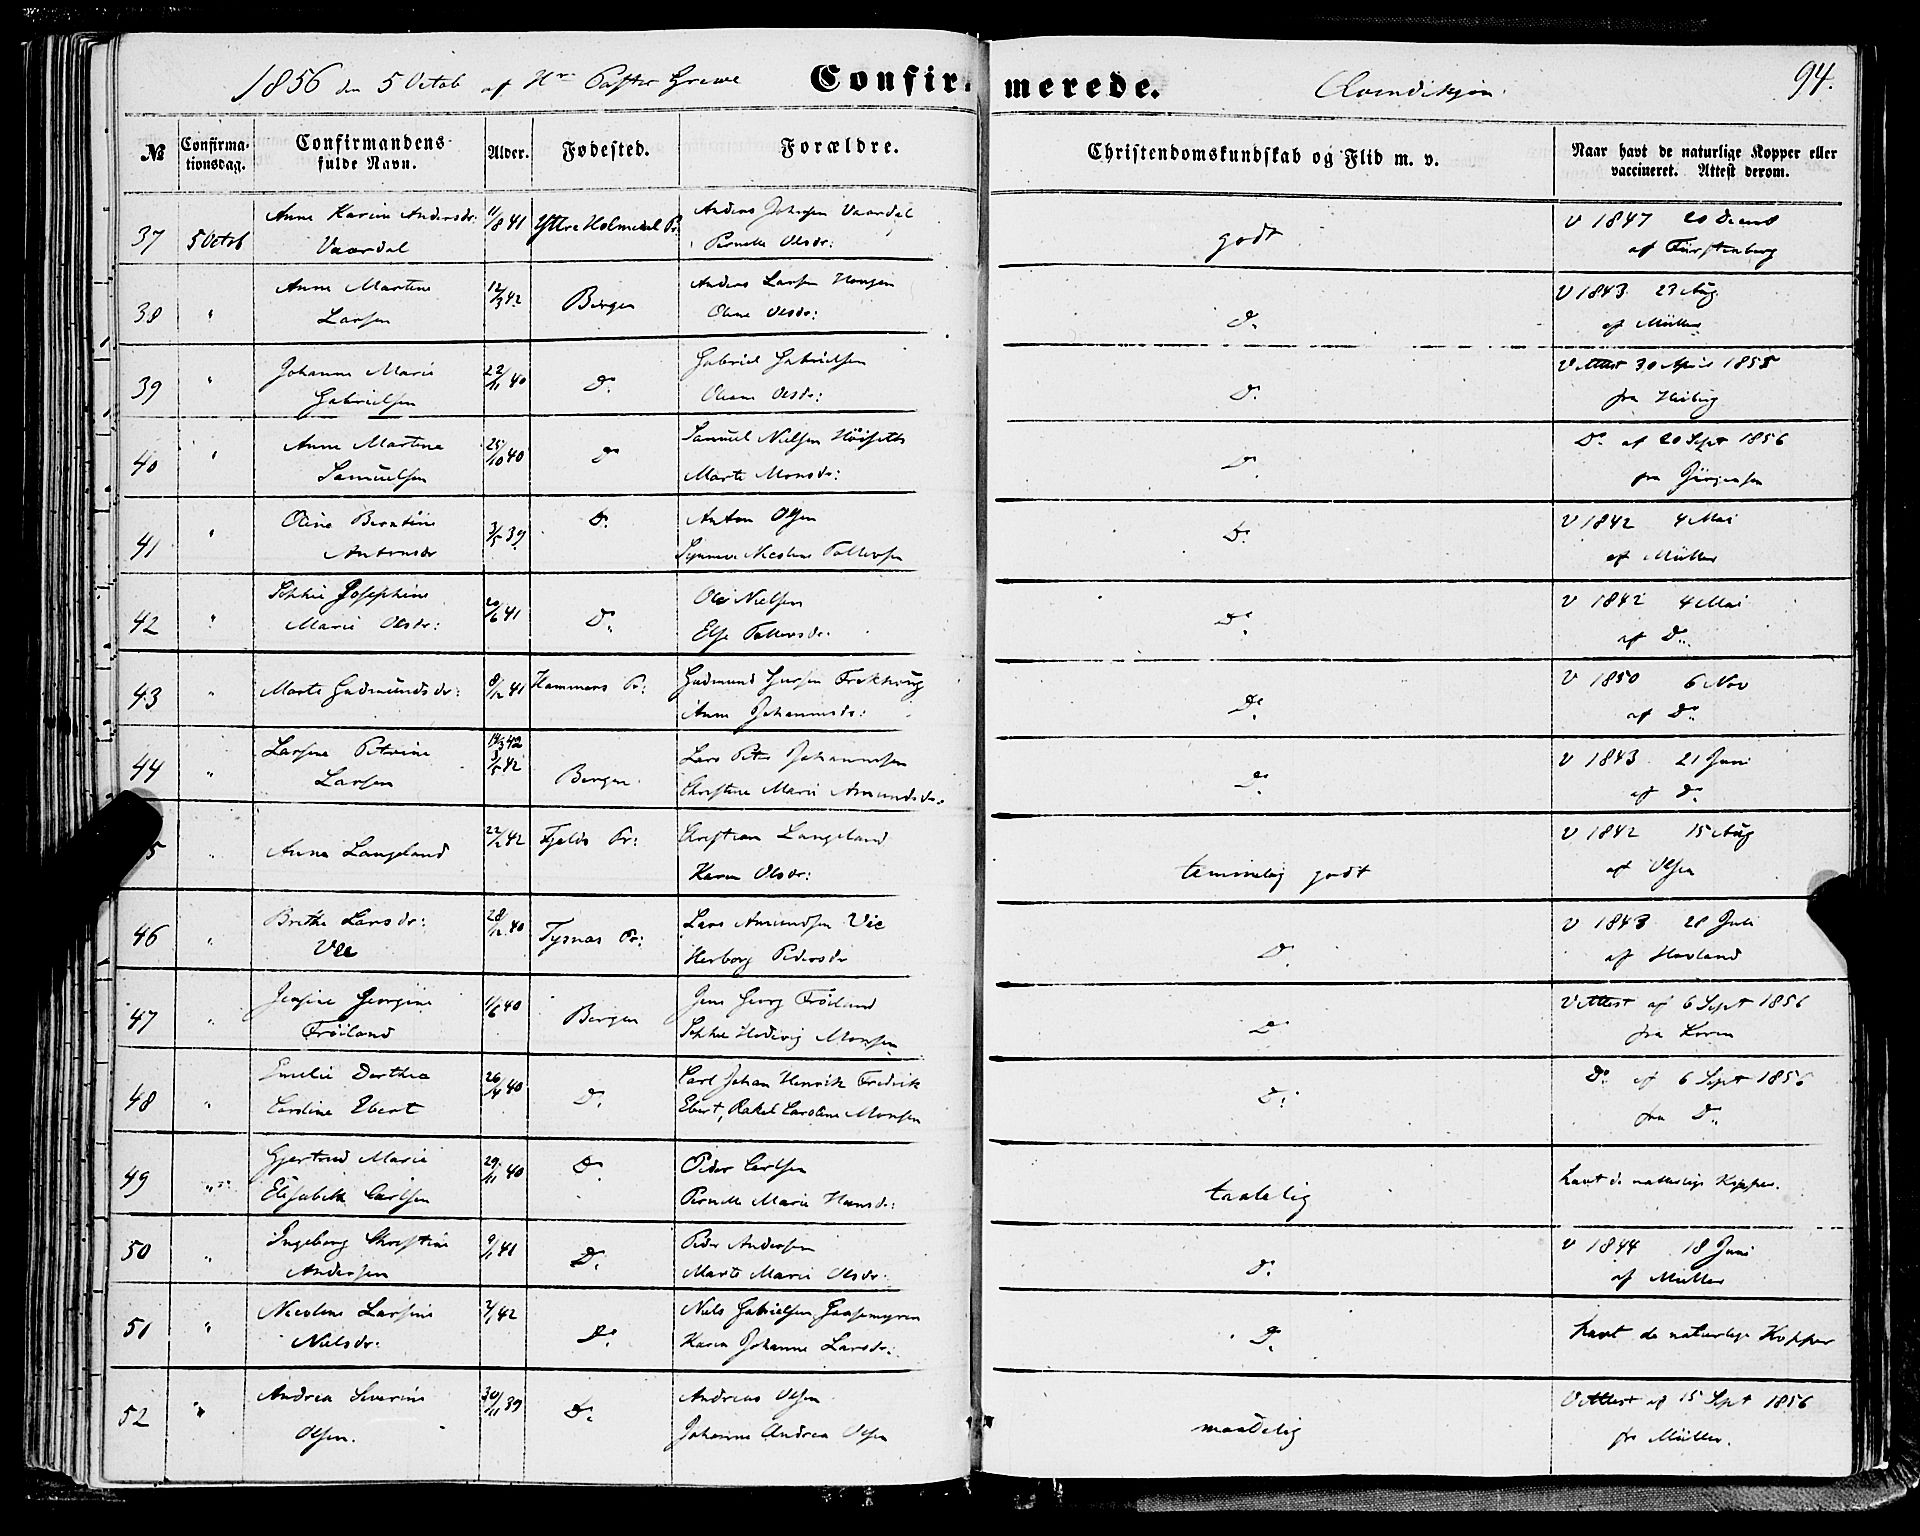 1856 den 5 Octob af Hr Pastor Grewe Confirmerede. Qvindekjøn. 94.
№ Confirmationsdag. Confirmandens fulde Navn. Alder. Fødested. Forældre. Christendomskundskab og Flid m. v. Naar havt de naturlige Kopper eller vaccineret. Attest derom.
37 5 Octob Anne Karine Andersdr: 11/8 41 Yttre Holmedal Pr Anders Johnsen Vaardal godt V 1847 20 Decemb
Vaardal Pernelle Olsdr: af Fürstenberg
38 " Anne Martine 12/3 42 Bergen Anders Larsen Haugen D. V 1843 23 Aug
Larsen Oline Olsdr: af Müller
39 " Johanne Marie 22/11 40 D. Gabriel Gabrielsen D. V Attest 30 April 1855
Gabrielsen Oleane Olsdr: fra Heiberg
40 " Anne Martine 25/10 40 D. Samuel Nielsen Höiseth D. Do af 20 Sept 1856
Samuelsen Marte Monsdr: fra Jörgensen
41 " Oline Berntine 3/5 39 D. Anton Olsen D. V 1842 4 Mai
Antonsdr Synneve Nicoline Tollevsen af Müller
42 " Sophie Josephine 20/6 41 D. Ole Nielsen D. V 1842 4 Mai
Marie Olsdr: Else Tollevsdr: af D.
43 " Marte Gudmundsdr: 8/12 41 Hammers Pr: Gudmund Frekhaug D. V 1850 6 Nov
Anne Johannesdr: af D.
44 " Larsine Petrine 14/3 42 3/5 42 Bergen Lars Peter Johannesen D. V 1843 21 Juni
Larsen Christine Marie Amundsdr. af D.
5 " Anna Langeland 22/2 42 Fjelds Pr: Christian Langeland temmelig godt V 1842 15 Aug
Karen Olsdr: af Olsen
46 " Brithe Larsdr: 28/12 40 Tysnæs Pr: Lars Amundsen Vie D. V 1843 28 Juli
Vee Herborg Pedersdr af Hovland
47 " Jensine Georgine 1/6 40 Bergen Jens Georg Fröiland D. V Attest af 6 Sept 1856
Fröiland Sophie Hedevig Monsen fra Koren
48 " Emilie Dorthea 26/4 40 D. Carl Johan Henrik Fredrik D. Do af 6 Sept 1856
Caroline Ebert Ebert, Rakel Caroline Monsen fra D.
49 " Gjertrud Marie 29/11 40 D. Peder Carlsen taalelig havt de naturlige Kopper.
Elisabeth Carlsen Pernelle Marie Hansdr:
50 " Ingeborg Christine 9/1 41 D. Peder Andersen D. V 1844 18 Juni
Andersen Marte Marie Olsdr: af Müller
51 " Nicoline Larsine 2/1 42 D. Niels Gabrielsen Gaasemyren D. havt de naturlige Kopper
Nielsdr: Karen Johanne Larsdr:
52 " Andrea Severine 30/11 39 D. Andreas Olsen maadelig V Attest af 15 Sept 1856
Olsen. Johanne Andrea Olsen fra Müller.